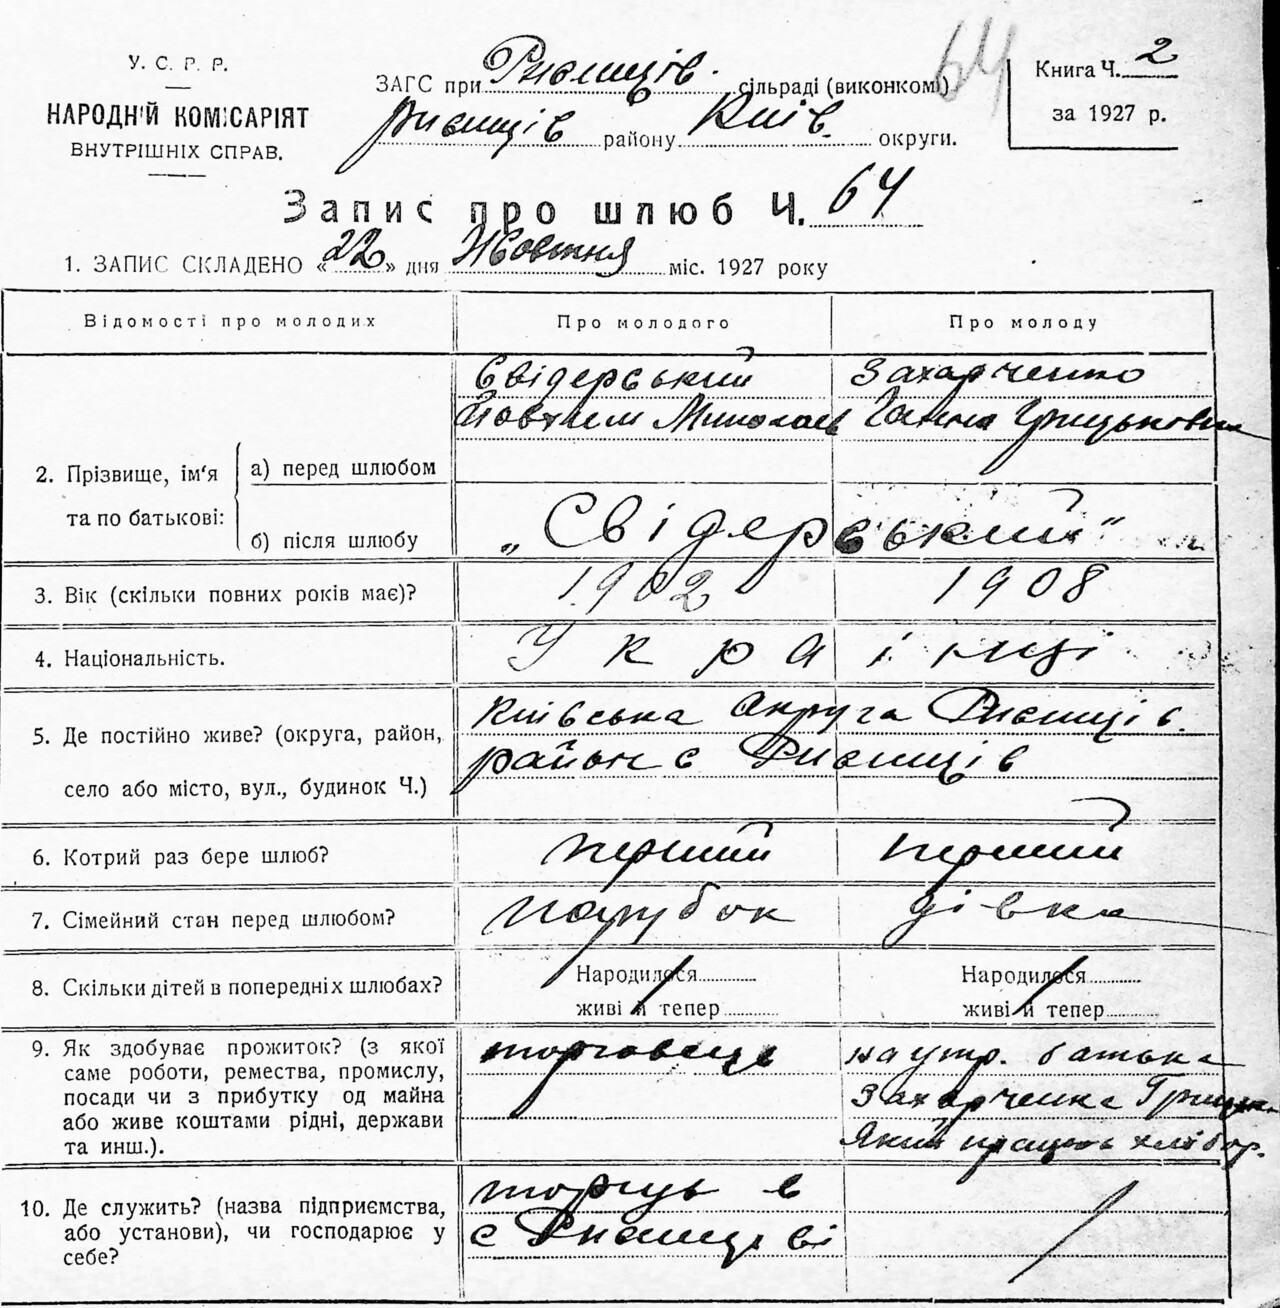 У. С. Р. Р.
НАРОДНІЙ КОМІСАРІЯТ
ВНУТРІШНІХ СПРАВ.
ЗАГС при Ржищів. сільраді (виконкомі)
Ржищів району Київ. округи.
64
Книга Ч. 2
за 1927 р.
Запис про шлюб Ч. 64
1. ЗАПИС СКЛАДЕНО «22» дня Жовтня міс. 1927 року
Відомості про молодих
Про молодого
Про молоду
2. Прізвище, ім'я та по батькові:
а) перед шлюбом
Свідерський
Миколаев
Захарченко
Ганна Грицьковна
б) після шлюбу
„Свідерський"
3. Вік (скільки повних років має)?
1902
1908
4. Національність.
Українці
5. Де постійно живе? (округа, район,
село або місто, вул., будинок Ч.)
Київська округа Ржищів.
район с Ржищів
6. Котрий раз бере шлюб?
перший
перший
7. Сімейний стан перед шлюбом?
парубок
дівка
8. Скільки дітей в попередніх шлюбах?
Народилося
живі й тепер
Народилося
живі й тепер
9. Як здобуває прожиток? (з якої
саме роботи, ремества, промислу,
посади чи з прибутку од майна
або живе коштами рідні, держави
та инш.).
торговець
на утр. батька
Захарченка Грицька
який працює хлібор.
10. Де служить? (назва підприємства,
або установи), чи господарює у
себе?
торгує в
с Ржищеві